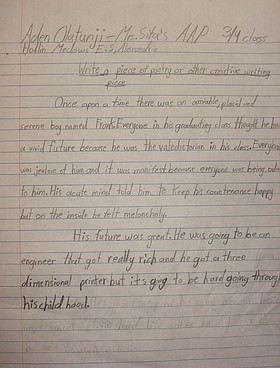 Aden Olatunji - Mr. Sita's AAP 3/4 class
Hollin Meadows E.S, Alexandria
Write a piece of poetry or other creative writing
piece
Once upon a time there was an amiable, placid and
serene boy named Frank. Everyone in his graduating class thought he had
a vivid future because he was the valedictorian in his class. Everyone
was jealous of him and it was manifest because everyone was being
to him. His acute mind told him to keep his countenance happy
but on the inside he felt melancholy.
His future was great. He was going to be an
engineer that got really rich and he got a three
dimensional printer but it's going to be hard going through
his child hood.